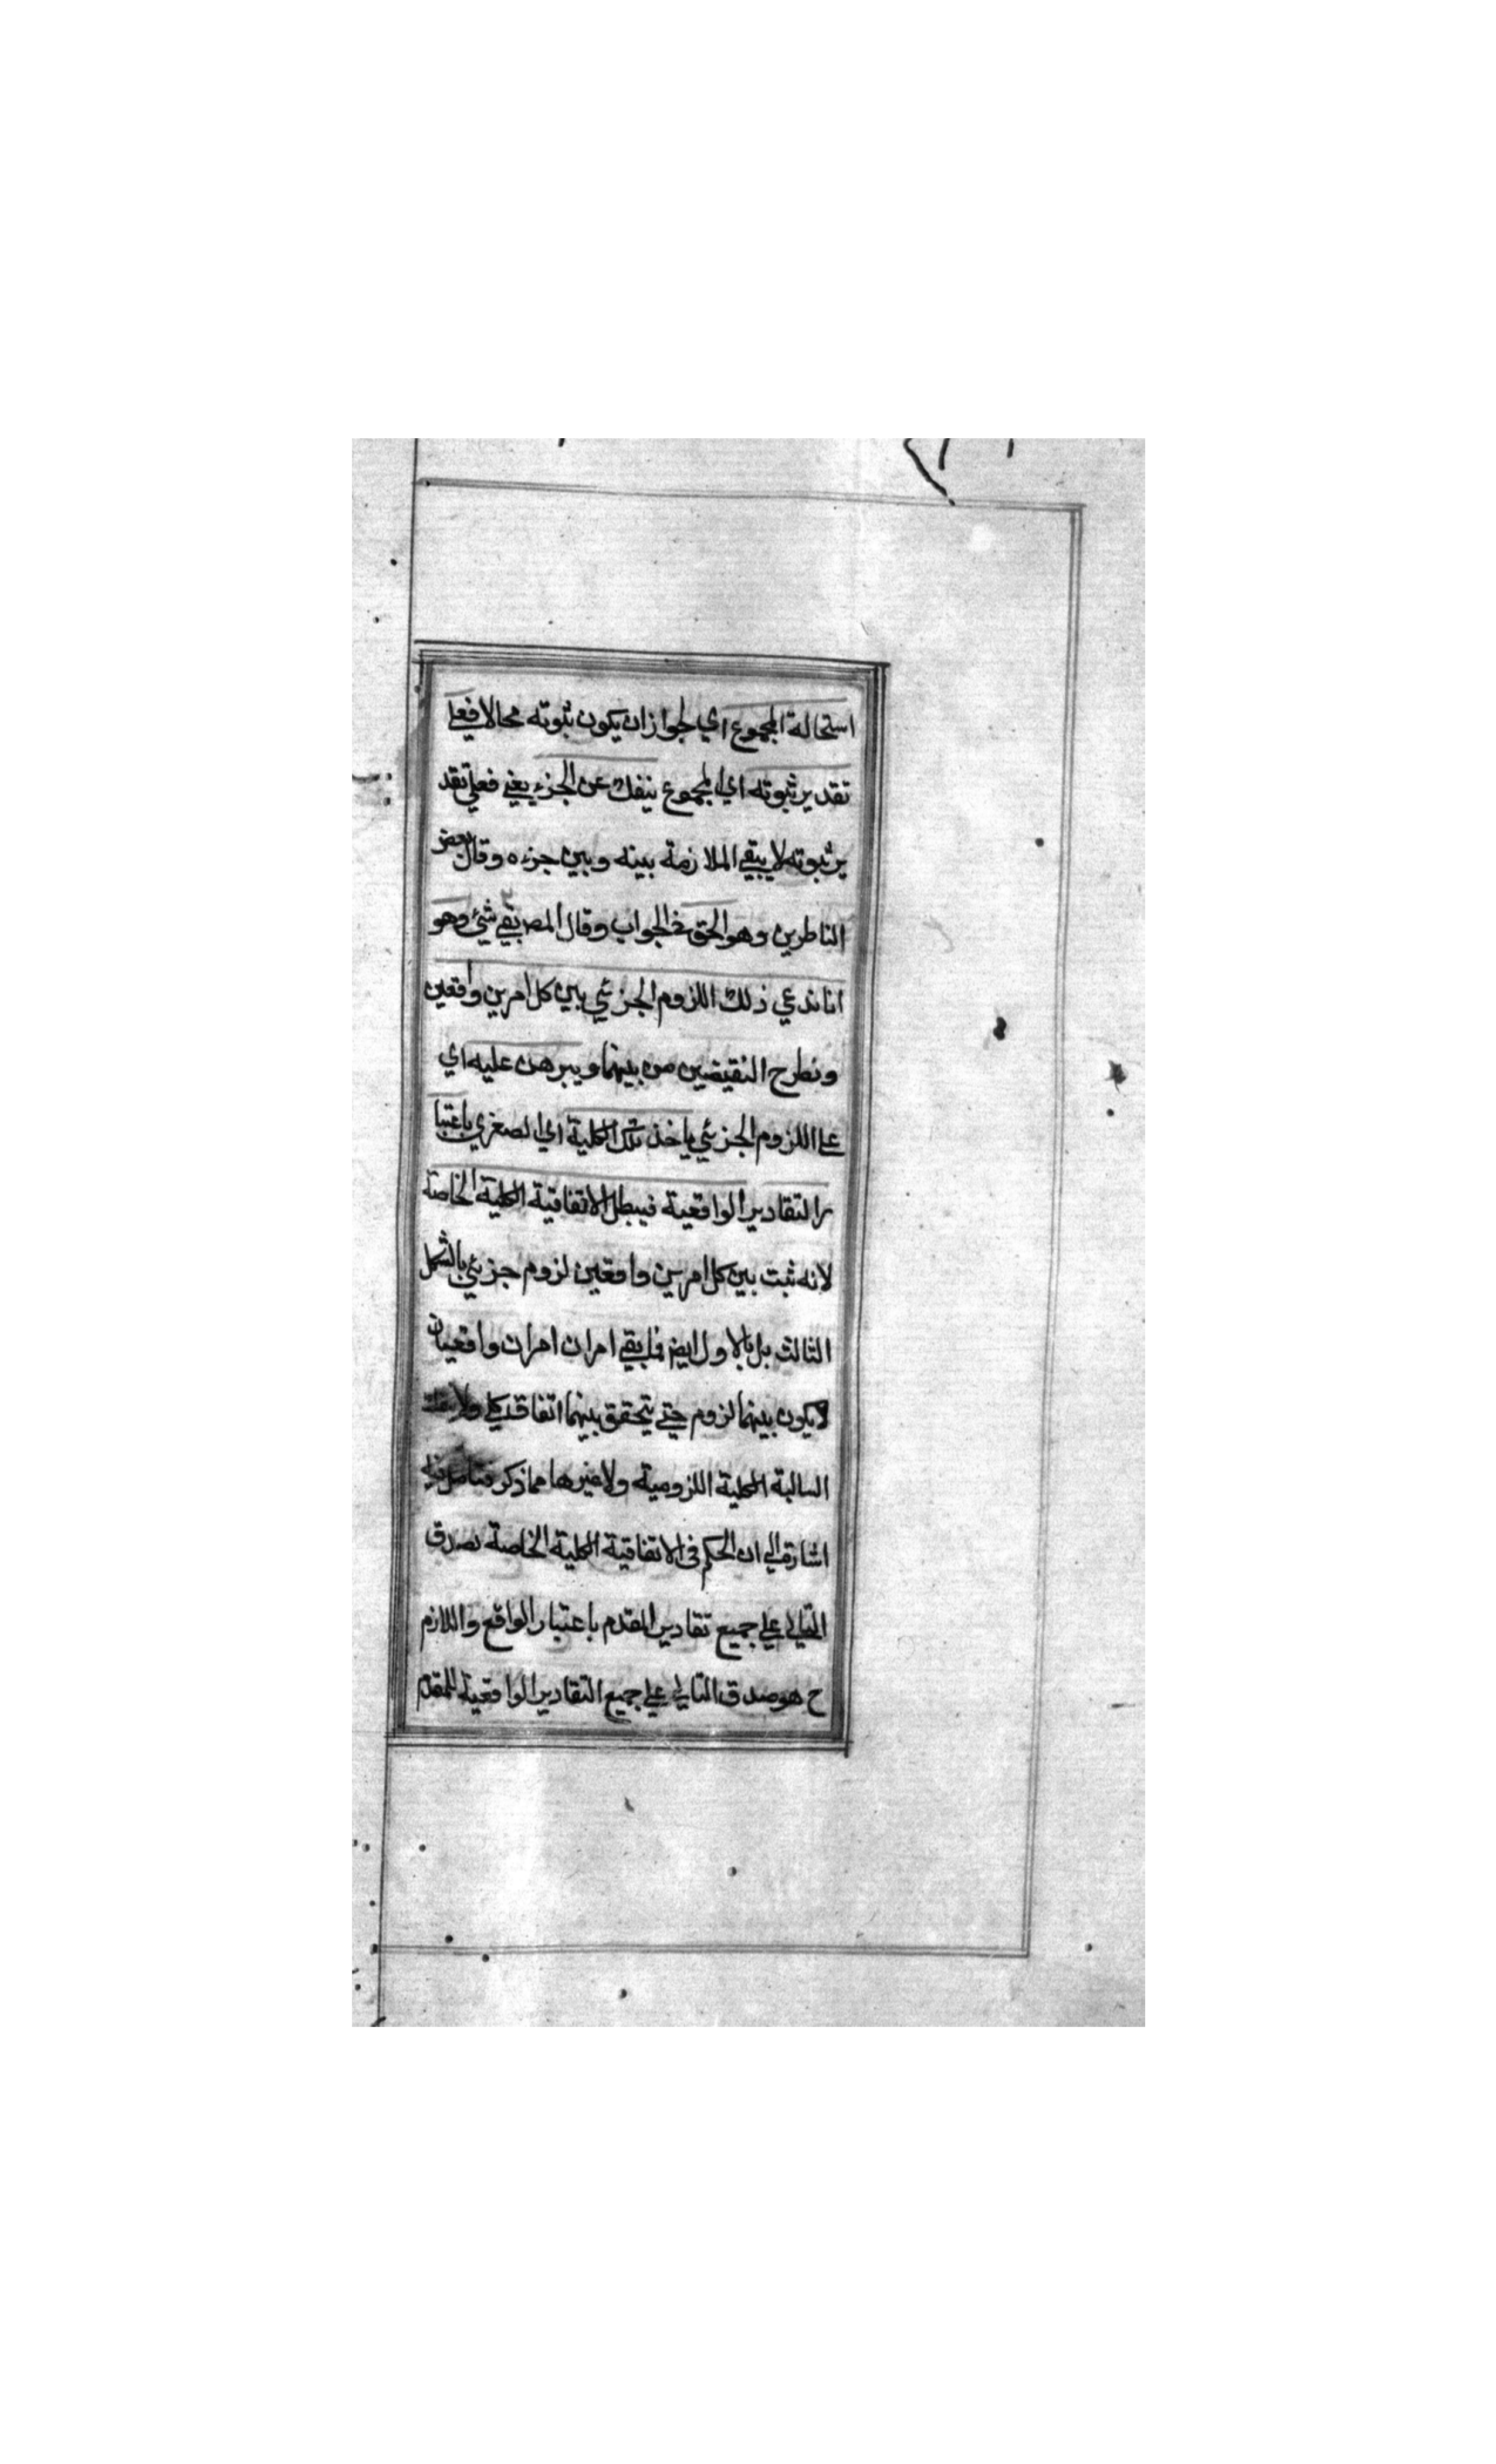 استحالة المجموع اي لجواز ان يكون ثبوته محالا فعلي
تقدير ثبوته اي المجموع ينفك عن الجزء يعني فعلي تقد
ير ثبوته لا يبقي الملازمة بينه وبين جزءه وقال بعض
الناظرين وهو الحق في الجواب وقال المصـ بقي شيئ وهو
انا ندعي ذلك اللزوم الجزئي بين كل امرين واقعين
ونطرح النقيضين من بينهما ويبرهن عليه اي
علي اللزوم الجزئي ياخذ تلك الكلية اي الصغري باعتبا
ر التقادير الواقعية فيبطل الاتفاقية الكلية الخاصة
لانه ثبت بين كل امرين واقعين لزوم جزئي بالشكل
الثالث بل بالاول ايضـ فلم يبقي امران امران واقعيان
لا يكون بينهما لزوم حتي يتحقق بينهما اتفاق كلي ولا
السالبة الكلية اللزومية ولا غيرها مما ذكر فتامل فيه
اشارة الي ان الحكم في الاتفاقية الكلية الخاصة بصدق
التالي علي جميع تقادير المقدم باعتبار الواقع واللازم
ح هو صدق التالي علي جميع التقادير الواقعية للمقدم